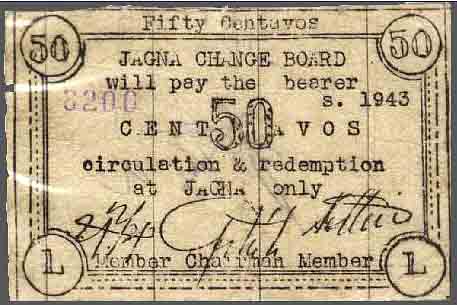 Fifty Centavos
50 50
JAGNA CHANGE BOARD
will pay the bearer
8200 s. 1943
CENT 50 AVOS
circulation & redemption
at JAGNA only
L L
Member Chairman Member